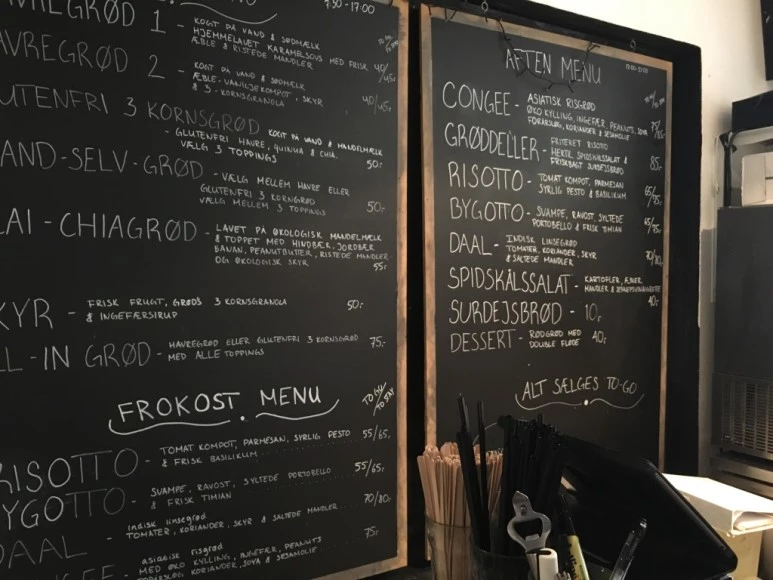 7:30-17:00
AVREGRØD 1 - KOGT PÅ VAND & SØDMÆLK
HJEMMELAVET KARAMELSOVS MED FRISK
ÆBLE & RISTEDE MANDLER 40/45,-
AVREGRØD 2 - KOGT PÅ VAND & SØDMÆLK
ÆBLE-VANILJEKOMPOT, SKYR
& 3-KORNSGRANOLA 40/45,-
UTENFRI 3 KORNSGRØD KOGT PÅ VAND & MANDELMÆLK
- GLUTENFRI HAVRE, QUINUA & CHIA.
VÆLG 3 TOPPINGS 50,-
AND-SELV-GRØD - VÆLG MELLEM HAVRE ELLER
GLUTENFRI 3 KORNGRØD
VÆLG MELLEM 3 TOPPINGS 50,-
AI-CHIAGRØD - LAVET PÅ ØKOLOGISK MANDELMÆLK
& TOPPET MED HINDBÆR, JORDBÆR
BANAN, PEANUTBUTTER, RISTEDE MANDLER
OG ØKOLOGISK SKYR 55,-
KYR - FRISK FRUGT, GRØDS 3 KORNSGRANOLA
& INGEFÆRSIRUP 50,-
LL-IN GRØD - HAVREGRØD ELLER GLUTENFRI 3 KORNSGRØD
MED ALLE TOPPINGS 75,-
FROKOST MENU TO GO/
TO STAY
RISOTTO - TOMAT KOMPOT, PARMESAN, SYRLIG PESTO
& FRISK BASILIKUM 55/65,-
YGOTTO - SVAMPE, RAVOST, SYLTEDE PORTOBELLO
& FRISK TIMIAN 55/65,-
DAAL - indisk linsegrød
TOMATER, KORIANDER, SKYR & SALTEDE MANDLER 70/80,-
GEE - asiatisk risgrød
MED ØKO KYLLING, INGEFÆR, PEANUTS
FORÅRSLØG, KORIANDER, SOYA & SESAMOLIE 75,-
AFTEN MENU
CONGEE - ASIATISK RISGRØD
ØKO KYLLING, INGEFÆR, PEANUTS, SOYA
FORÅRSLØG, KORIANDER & SESAMOLIE
GRØDDELLER - FRITERET RISOTTO
HERTIL SPIDSKÅLSSALAT &
FRISKBAGT SURDEJSBRØD 85,-
RISOTTO - TOMAT KOMPOT, PARMESAN
SYRLIG PESTO & BASILIKUM 65/75,-
BYGOTTO - SVAMPE, RAVOST, SYLTEDE
PORTOBELLO & FRISK TIMIAN 65/75,-
DAAL - INDISK LINSEGRØD
TOMATER, KORIANDER, SKYR
& SALTEDE MANDLER 70/80,-
SPIDSKÅLSSALAT - KARTOFLER, ÆBLER,
MANDLER & 40,-
SURDEJSBRØD - 10,-
DESSERT - RØDGRØD MED
DOUBLE FLØDE 40,-
ALT SÆLGES TO-GO